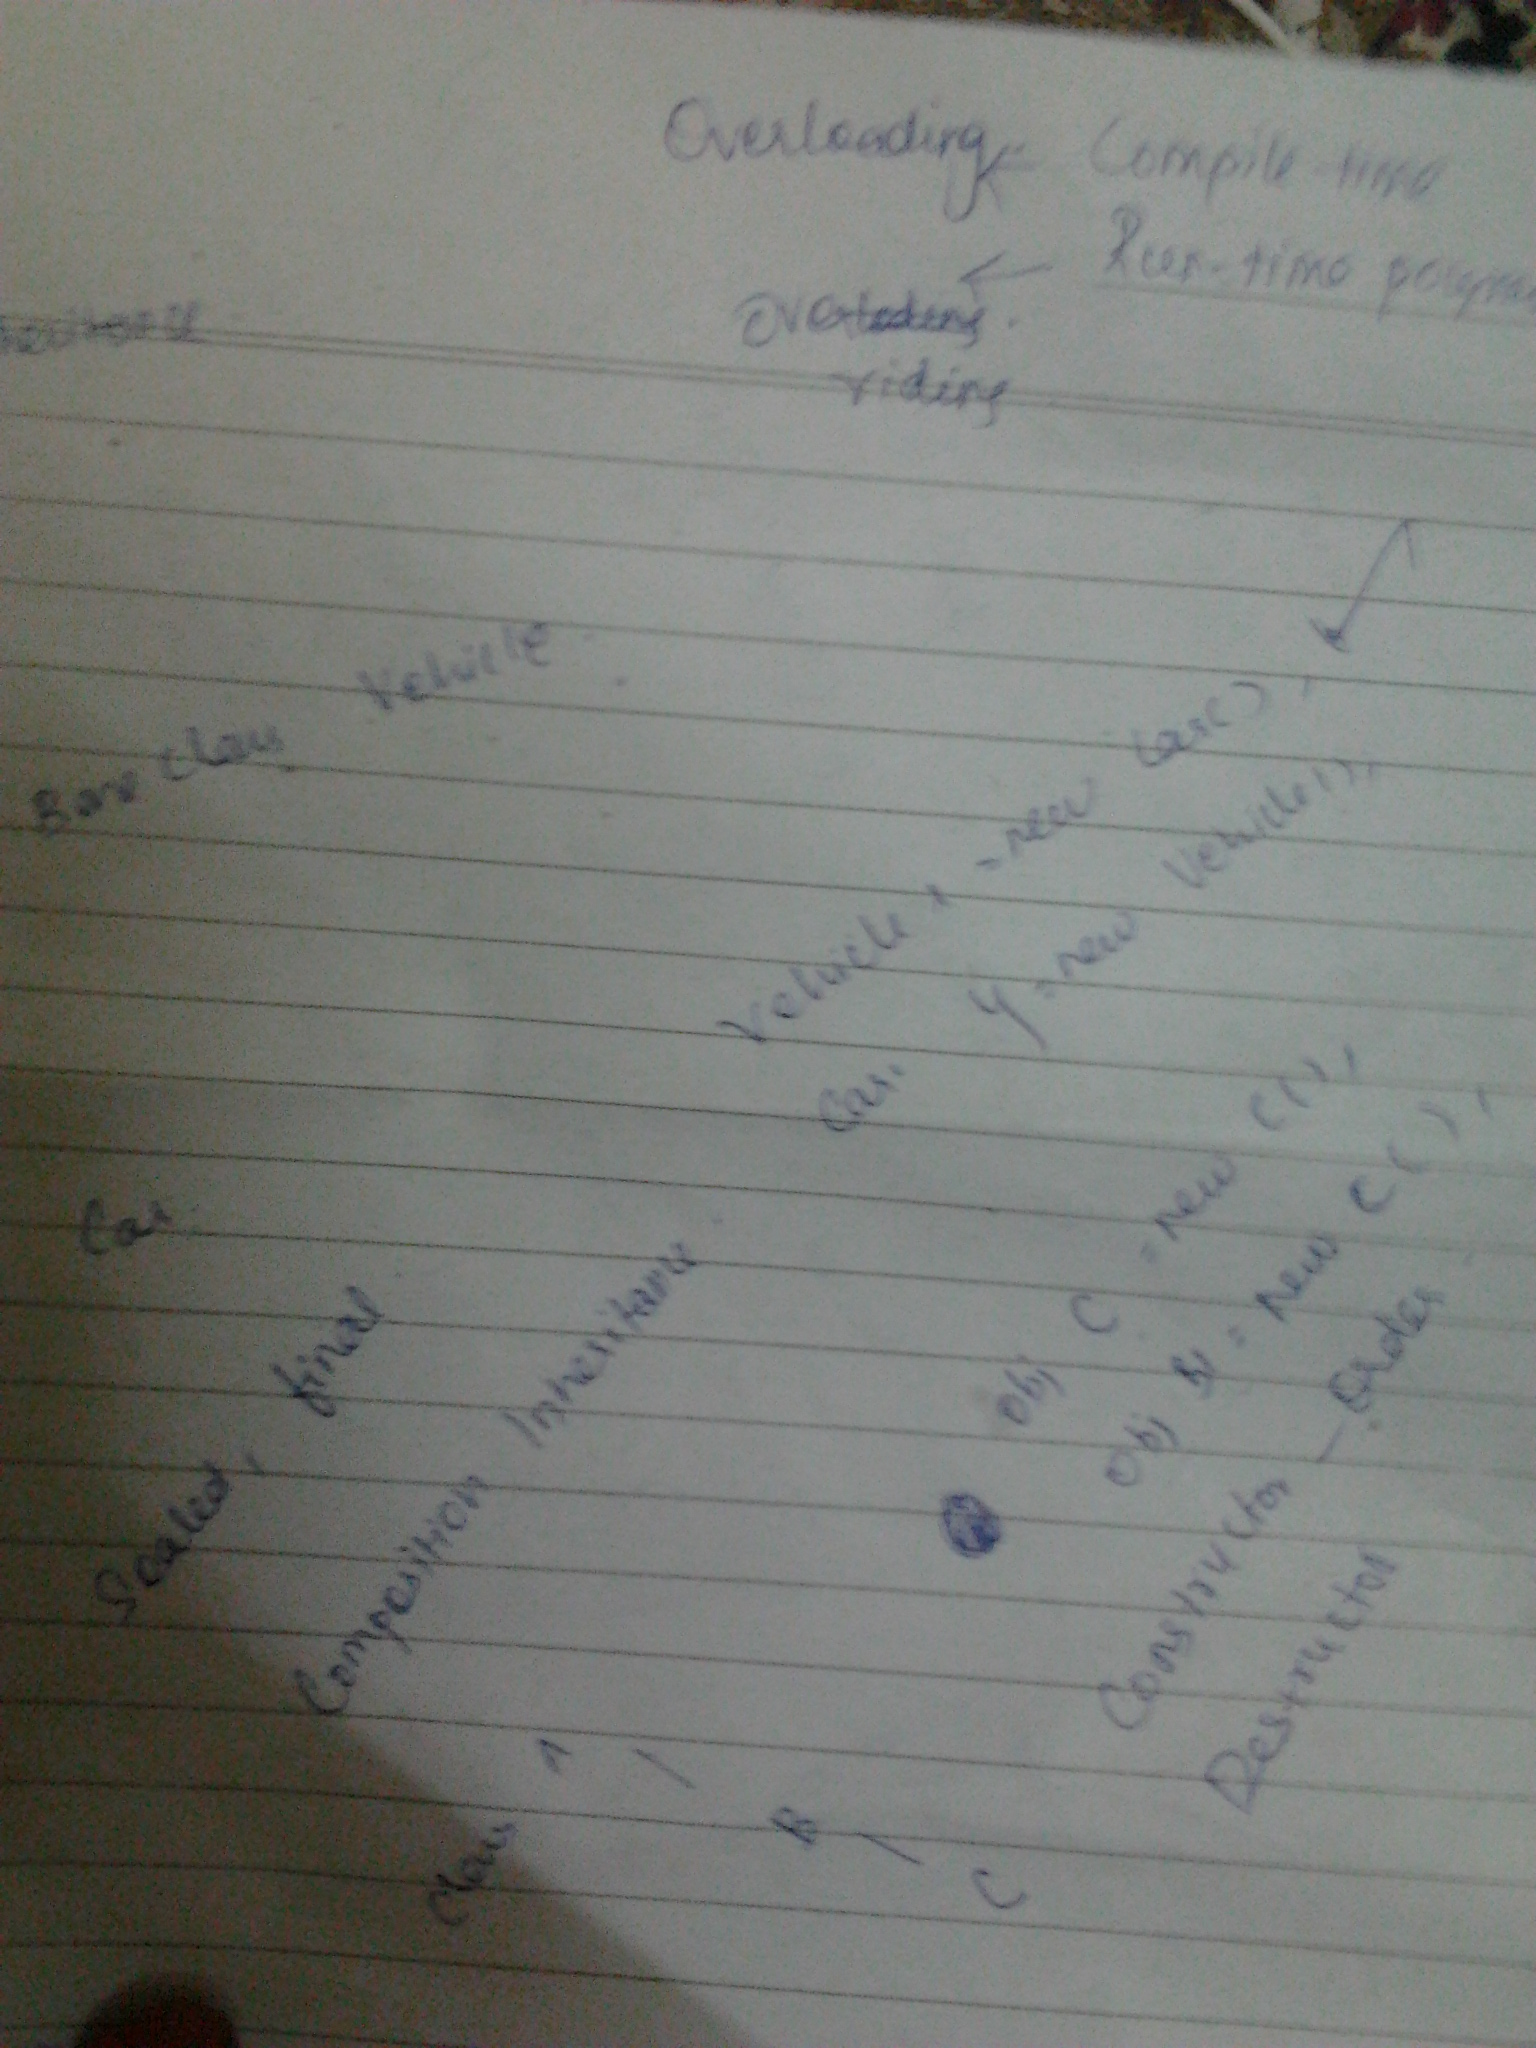 Overloading - Compile-time
Overloading. ← Run-time polym
riding
Base class Vehicle
Car
Vehicle x = new Car();
Car y = new Vehicle();
Sealed, final
Composition Inheritance
Obj C = new C();
Obj B1 = new C();
Class A
B
C
Constructor - Order
Destructor